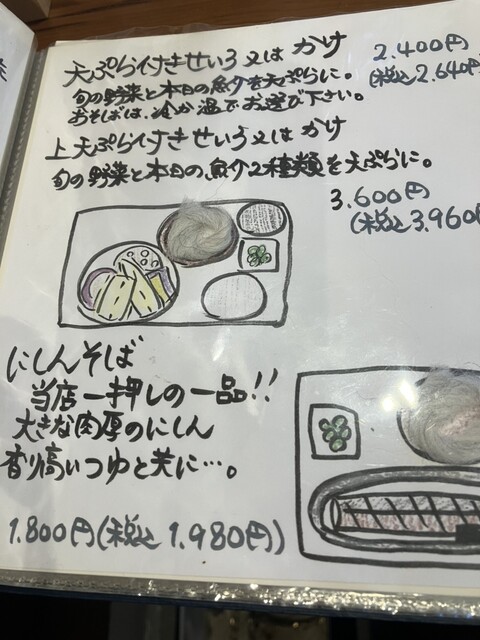 天ぷら付きせいろ又は かけ
2.400円
(税込2.640円
旬の野菜と本日の魚介を天ぷらに。
おそばは、冷か温でお選び下さい。
上天ぷら付きせいろ又は かけ
旬の野菜と本日の、魚介2種類を天ぷらに。
3.600円
(税込3.960円
にしんそば
当店一押しの一品!!
大きな肉厚のにしん
香り高いつゆと共に…。
1.800円(税込1.980円)